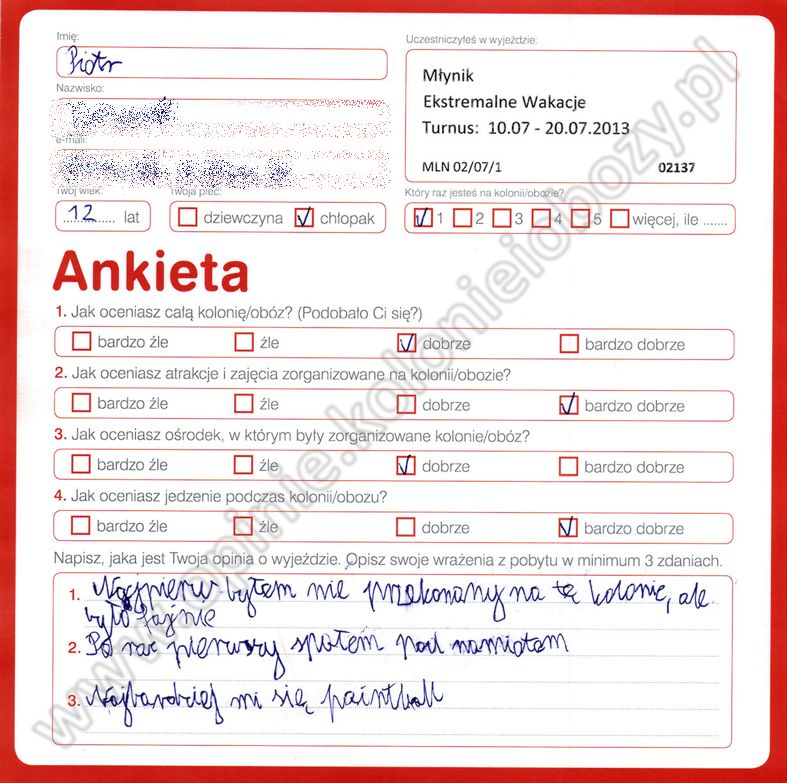 Imię:
Piotr
Nazwisko:
e-mail:
Twój wiek:
12 lat
Twoja płeć:
dziewczyna chłopak
Uczestniczyłeś w wyjeździe:
Młynik
Ekstremalne Wakacje
Turnus: 10.07 - 20.07.2013
MLN 02/07/1 02137
Który raz jesteś na kolonii/obozie?
1 2 3 4 5 więcej, ile .......
Ankieta
1. Jak oceniasz całą kolonię/obóz? (Podobało Ci się?)
bardzo źle źle dobrze bardzo dobrze
2. Jak oceniasz atrakcje i zajęcia zorganizowane na kolonii/obozie?
bardzo źle źle dobrze bardzo dobrze
3. Jak oceniasz ośrodek, w którym były zorganizowane kolonie/obóz?
bardzo źle źle dobrze bardzo dobrze
4. Jak oceniasz jedzenie podczas kolonii/obozu?
bardzo źle źle dobrze bardzo dobrze
Napisz, jaka jest Twoja opinia o wyjeździe. Opisz swoje wrażenia z pobytu w minimum 3 zdaniach.
1. Najpierw byłem nie przekonany na tę kolonie, ale
było fajnie
2. Po raz pierwszy społem pod namiotem
3. Najbardziej mi się paintball
www.opinie.kolonieiobozy.pl